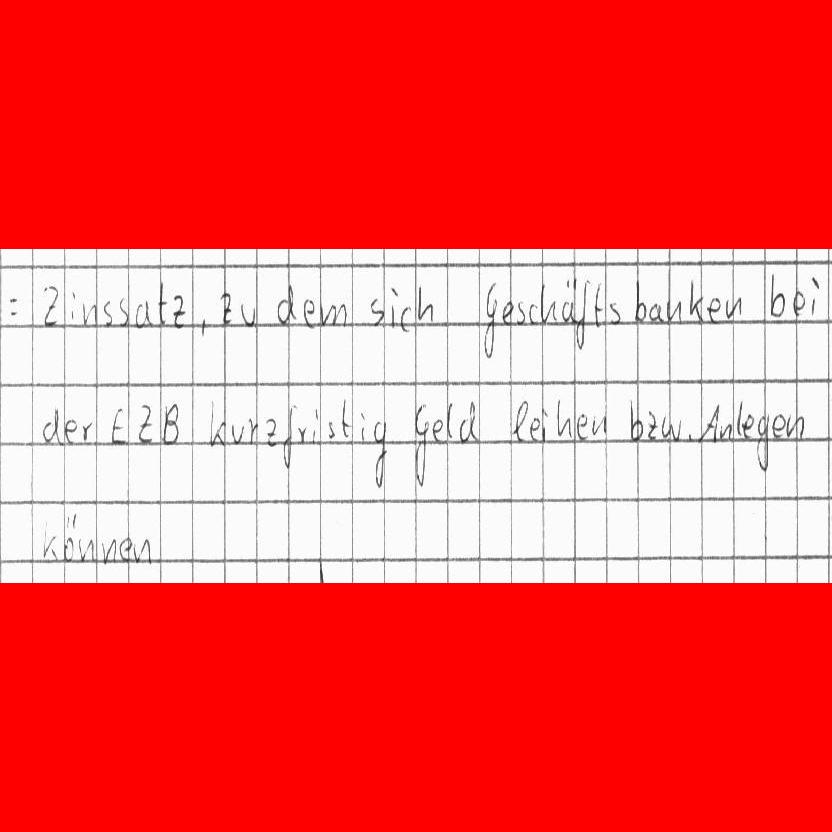 = Zinssatz, zu dem sich Geschäftsbanken bei
der EZB kurzfristig Geld leihen bzw. Anlegen
können